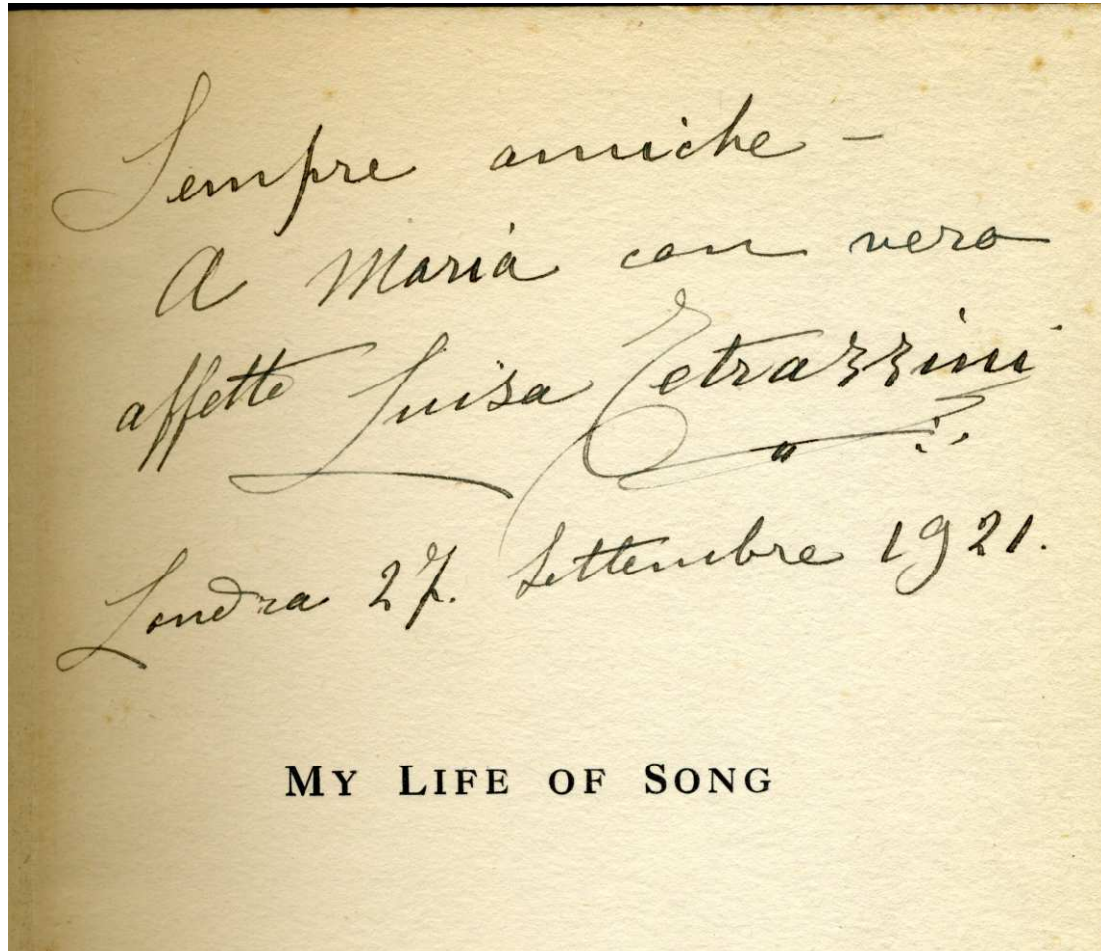 Sempre amiche –
A Maria con vero
affetto Luisa Tetrazzini
Londra 27. Settembre 1921.
MY LIFE OF SONG